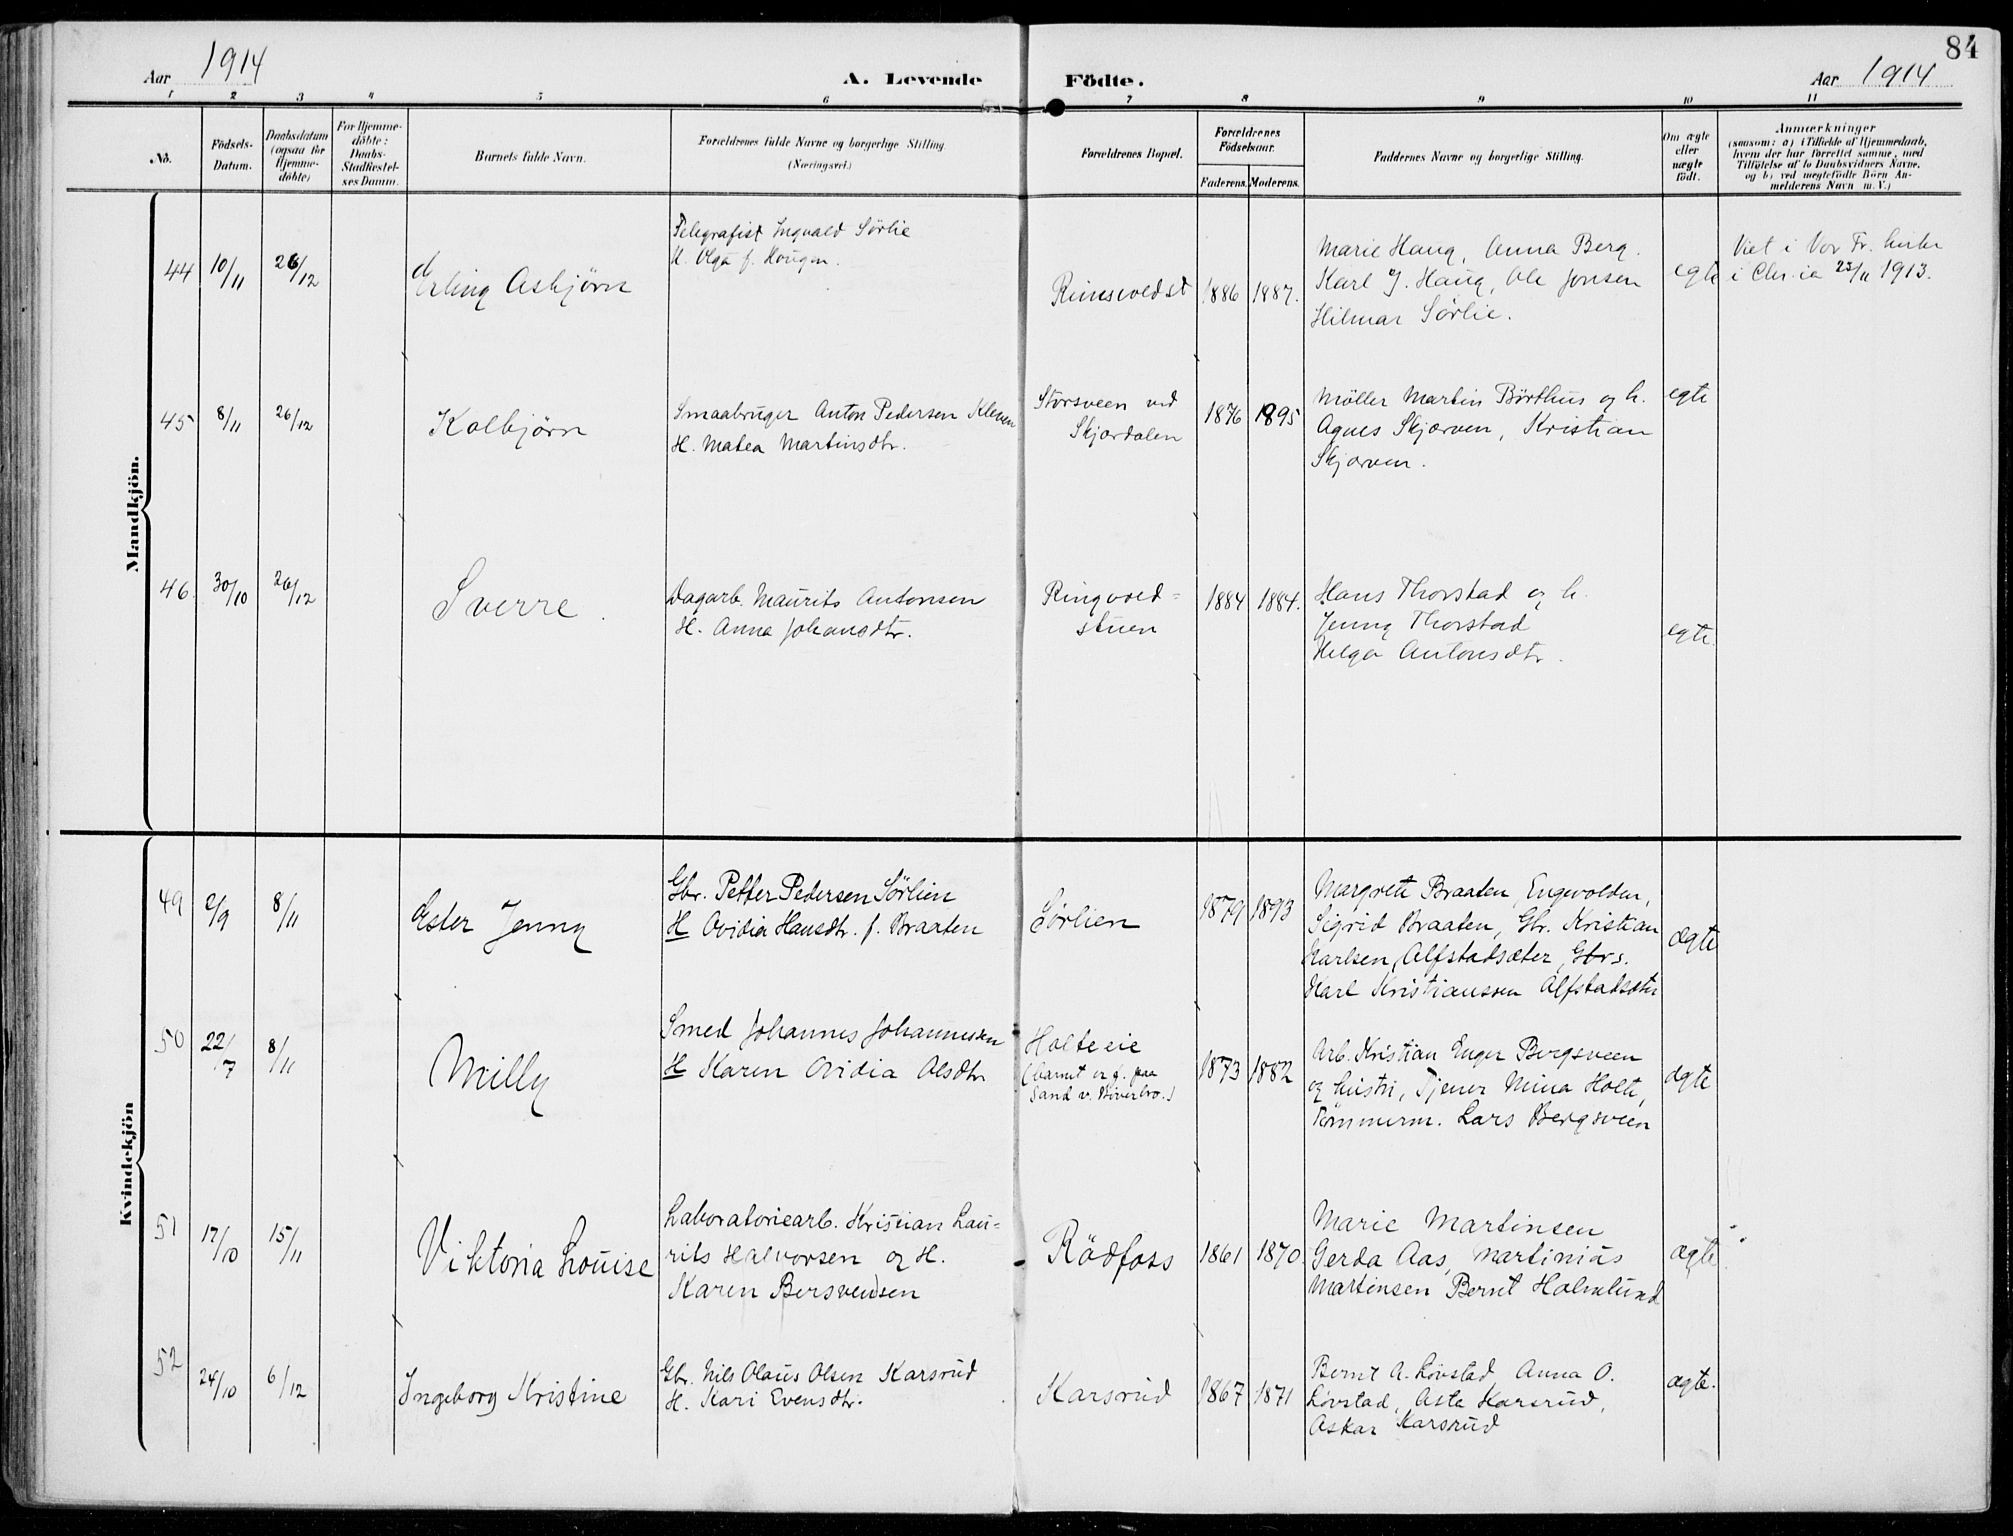 84
Aar 1914
A. Levende Födte.
Aar 1914
1 2 3 4 5 6 7 8 9 10 11
No.
Födsels-
Datum.
Daabsdatum
(ogsaa for
Hjemme-
döbte)
For Hjemme-
döbte:
Daabs-
Stadfæstel-
ses Datum.
Barnets fulde Navn.
Forældrenes fulde Navne og borgerlige Stilling.
(Næringsvei.)
Forældrenes Bopæl.
Forældrenes
Födselsaar.
Faderens. Moderens.
Faddernes Navne og borgerlige Stilling.
Om ægte
eller
uægte
födt.
Anmærkninger
(saasom: a) i Tilfælde af Hjemmedaab,
hvem der har forrettet samme, med
Tilföielse af to Daabsvidners Navne,
og b) ved uægtefödte Börn An-
melderens Navn m. V.)
Mandkjön.
44 10/11 26/12
Erling Asbjørn
Telegrafist Ingvald Sørlie
H. Olga f. Haugen.
1886 1887.
Marie Haug, Anna Berg.
Karl J. Haug, Ole Jonsen
Hilmar Sørlie.
egte
Viet i Vor Fr. kirke
i Chr.ia 23/11 1913.
45 8/11 26/12
Kolbjørn
Smaabruger Anton Pedersen Kleven
H. Matea Martinsdtr.
Storsveen ved
Skjærdalen
1876 1895
Møller Martin Børthus og h.
Agnes Skjærven, Kristian
Skjærven.
egte
46. 30/10 26/12
Sverre.
Dagarb. Maurits Antonsen
H. Anna Johansdtr.
Ringvold=
stuen
1884 1884.
Hans Thorstad og h.
Jenny Thorstad
Helga Antonsdtr.
egte.
Kvindekjön
49 2/9 8/11
Ester Jenny
Gbr. Petter Pedersen Sørlien
H Ovidia Hansdtr. f. Braaten
Sørlien
1879 1893
Margrete Braaten, Engevolden,
Sigrid Braaten, Gbr. Kristian
Karlsen, Alfstadsæter, Gbrs.
Karl Kristianssen Alfstadsætr
ægte
50 22/7 8/11
Milly
Smed Johannes Johannessen
H Karen Ovidia Olsdtr
Holteeie
(barnet er f. paa
Sand v. Bøverbro.)
1873 1882
Arb. Kristian Enger Bergsveen
og hustru, Tjener Mina Holte,
Tømmerm. Lars Bergsveen
ægte
51 17/10 15/11
Viktoria Louise
Laboratoriearb. Kristian Lau=
rits Halvorsen og H.
Karen Bersvendsen
Rödfoss
1861 1870.
Marie Martinsen
Gerda Aas, Martinius
Martinsen Bernt Holmlund
ægte.
52 24/10 6/12
Ingeborg Kristine
Gbr. Nils Olaus Olsen Karsrud
H. Kari Evensdtr.
Karsrud
1867 1871
Bernt A. Løvstad, Anna O.
Løvstad, Asta Karsrud,
Oskar Karsrud
ægte.